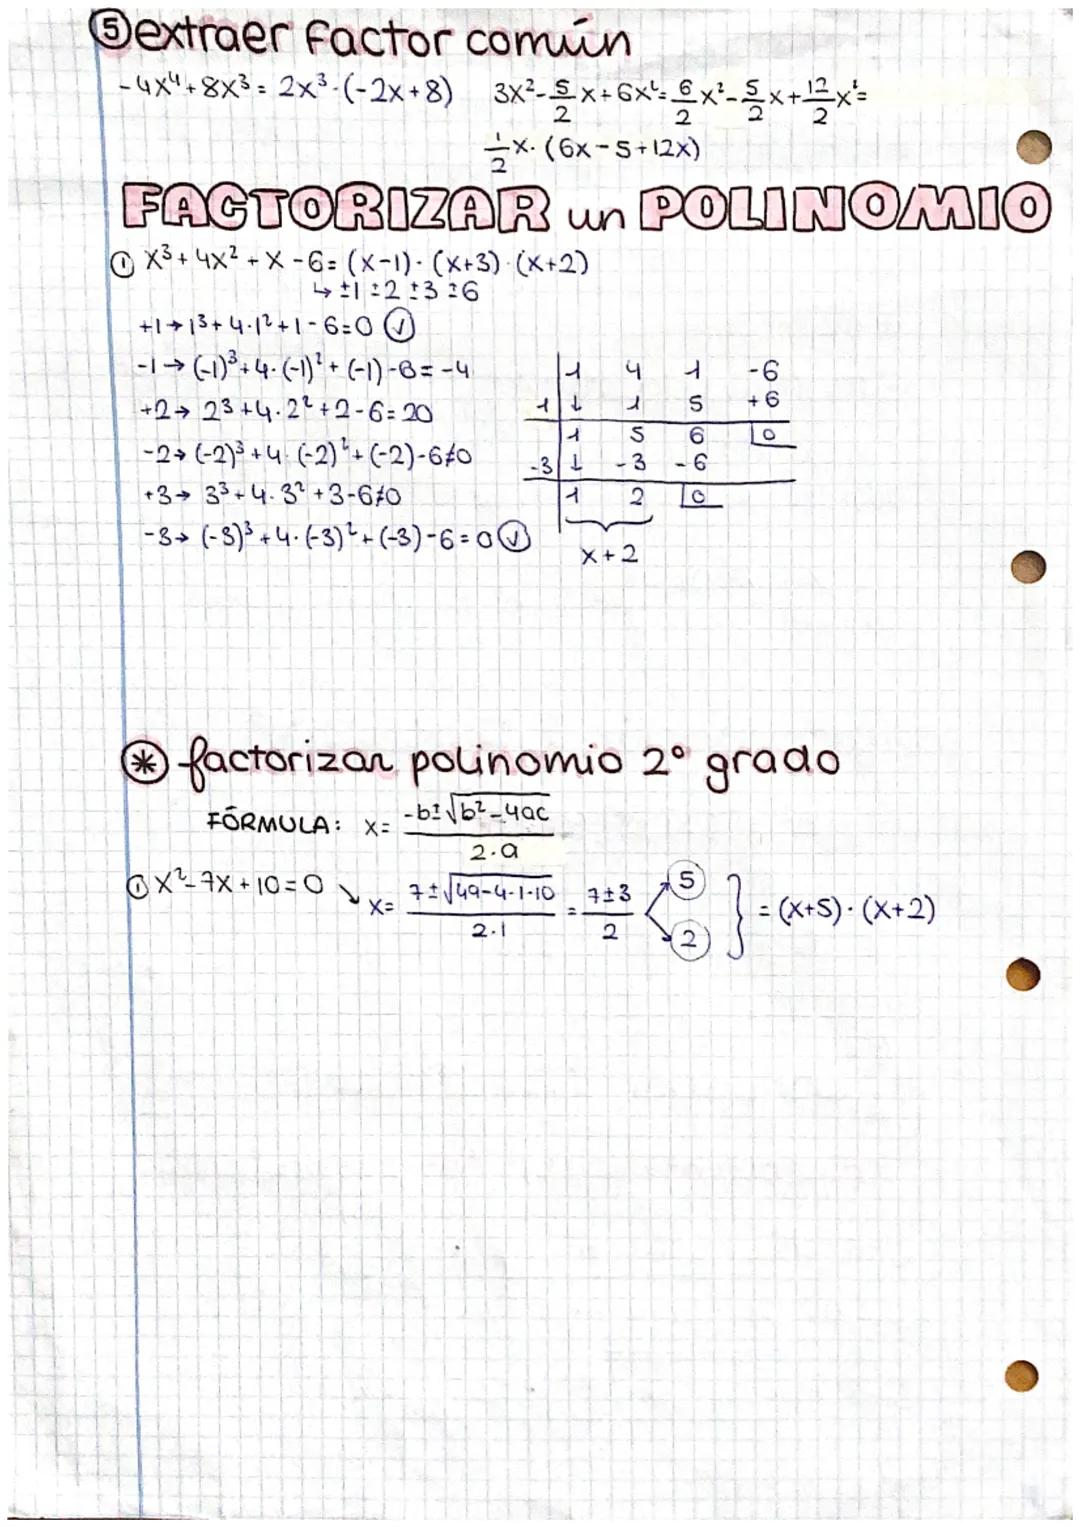 ⑤ extraer factor común
-4x⁴+8x³= 2x³·(-2x+8)
3x²-5/2x+6x²=6/2x²-5/2x+12/2x²=
1/2x·(6x-5+12x)
FACTORIZAR un POLINOMIO
① x³+4x²+x-6=(x-1)·(x+3)·(x+2)
↳ ±1 ±2 ±3 ±6
+1→1³+4·1²+1-6=0 ✓
-1→(-1)³+4·(-1)²+(-1)-6=-4
+2→2³+4·2²+2-6=20
-2→(-2)³+4·(-2)²+(-2)-6≠0
+3→3³+4·3²+3-6≠0
-3→(-3)³+4·(-3)²+(-3)-6=0 ✓
1 4 1 -6
1 ↓ 1 5 +6
1 5 6 0
-3 ↓ -3 -6
1 2 0
x+2
* factorizar polinomio 2º grado
FÓRMULA: x= -b±√b²-4ac / 2·a
① x²-7x+10=0 ↘ x= 7±√49-4·1·10 / 2·1 = 7±3 / 2 5 2 } =(x+5)·(x+2)